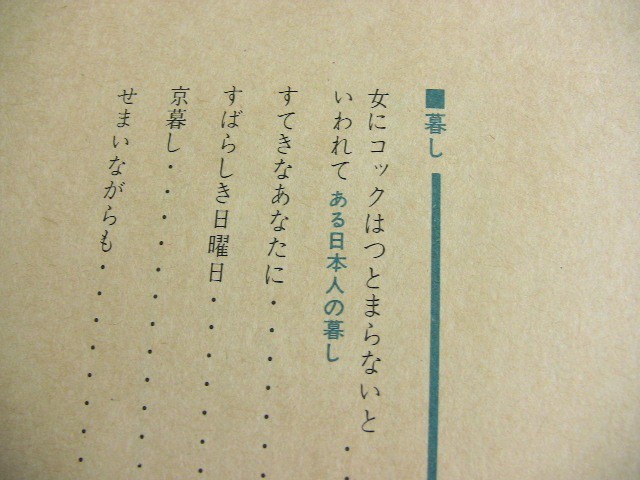 ■暮し
女にコックはつとまらないと
いわれて ある日本人の暮し
すてきなあなたに・・・・・
すばらしき日曜日・・・・・・
京暮し・・・・・・・・・・・・
せまいながらも・・・・・・・・